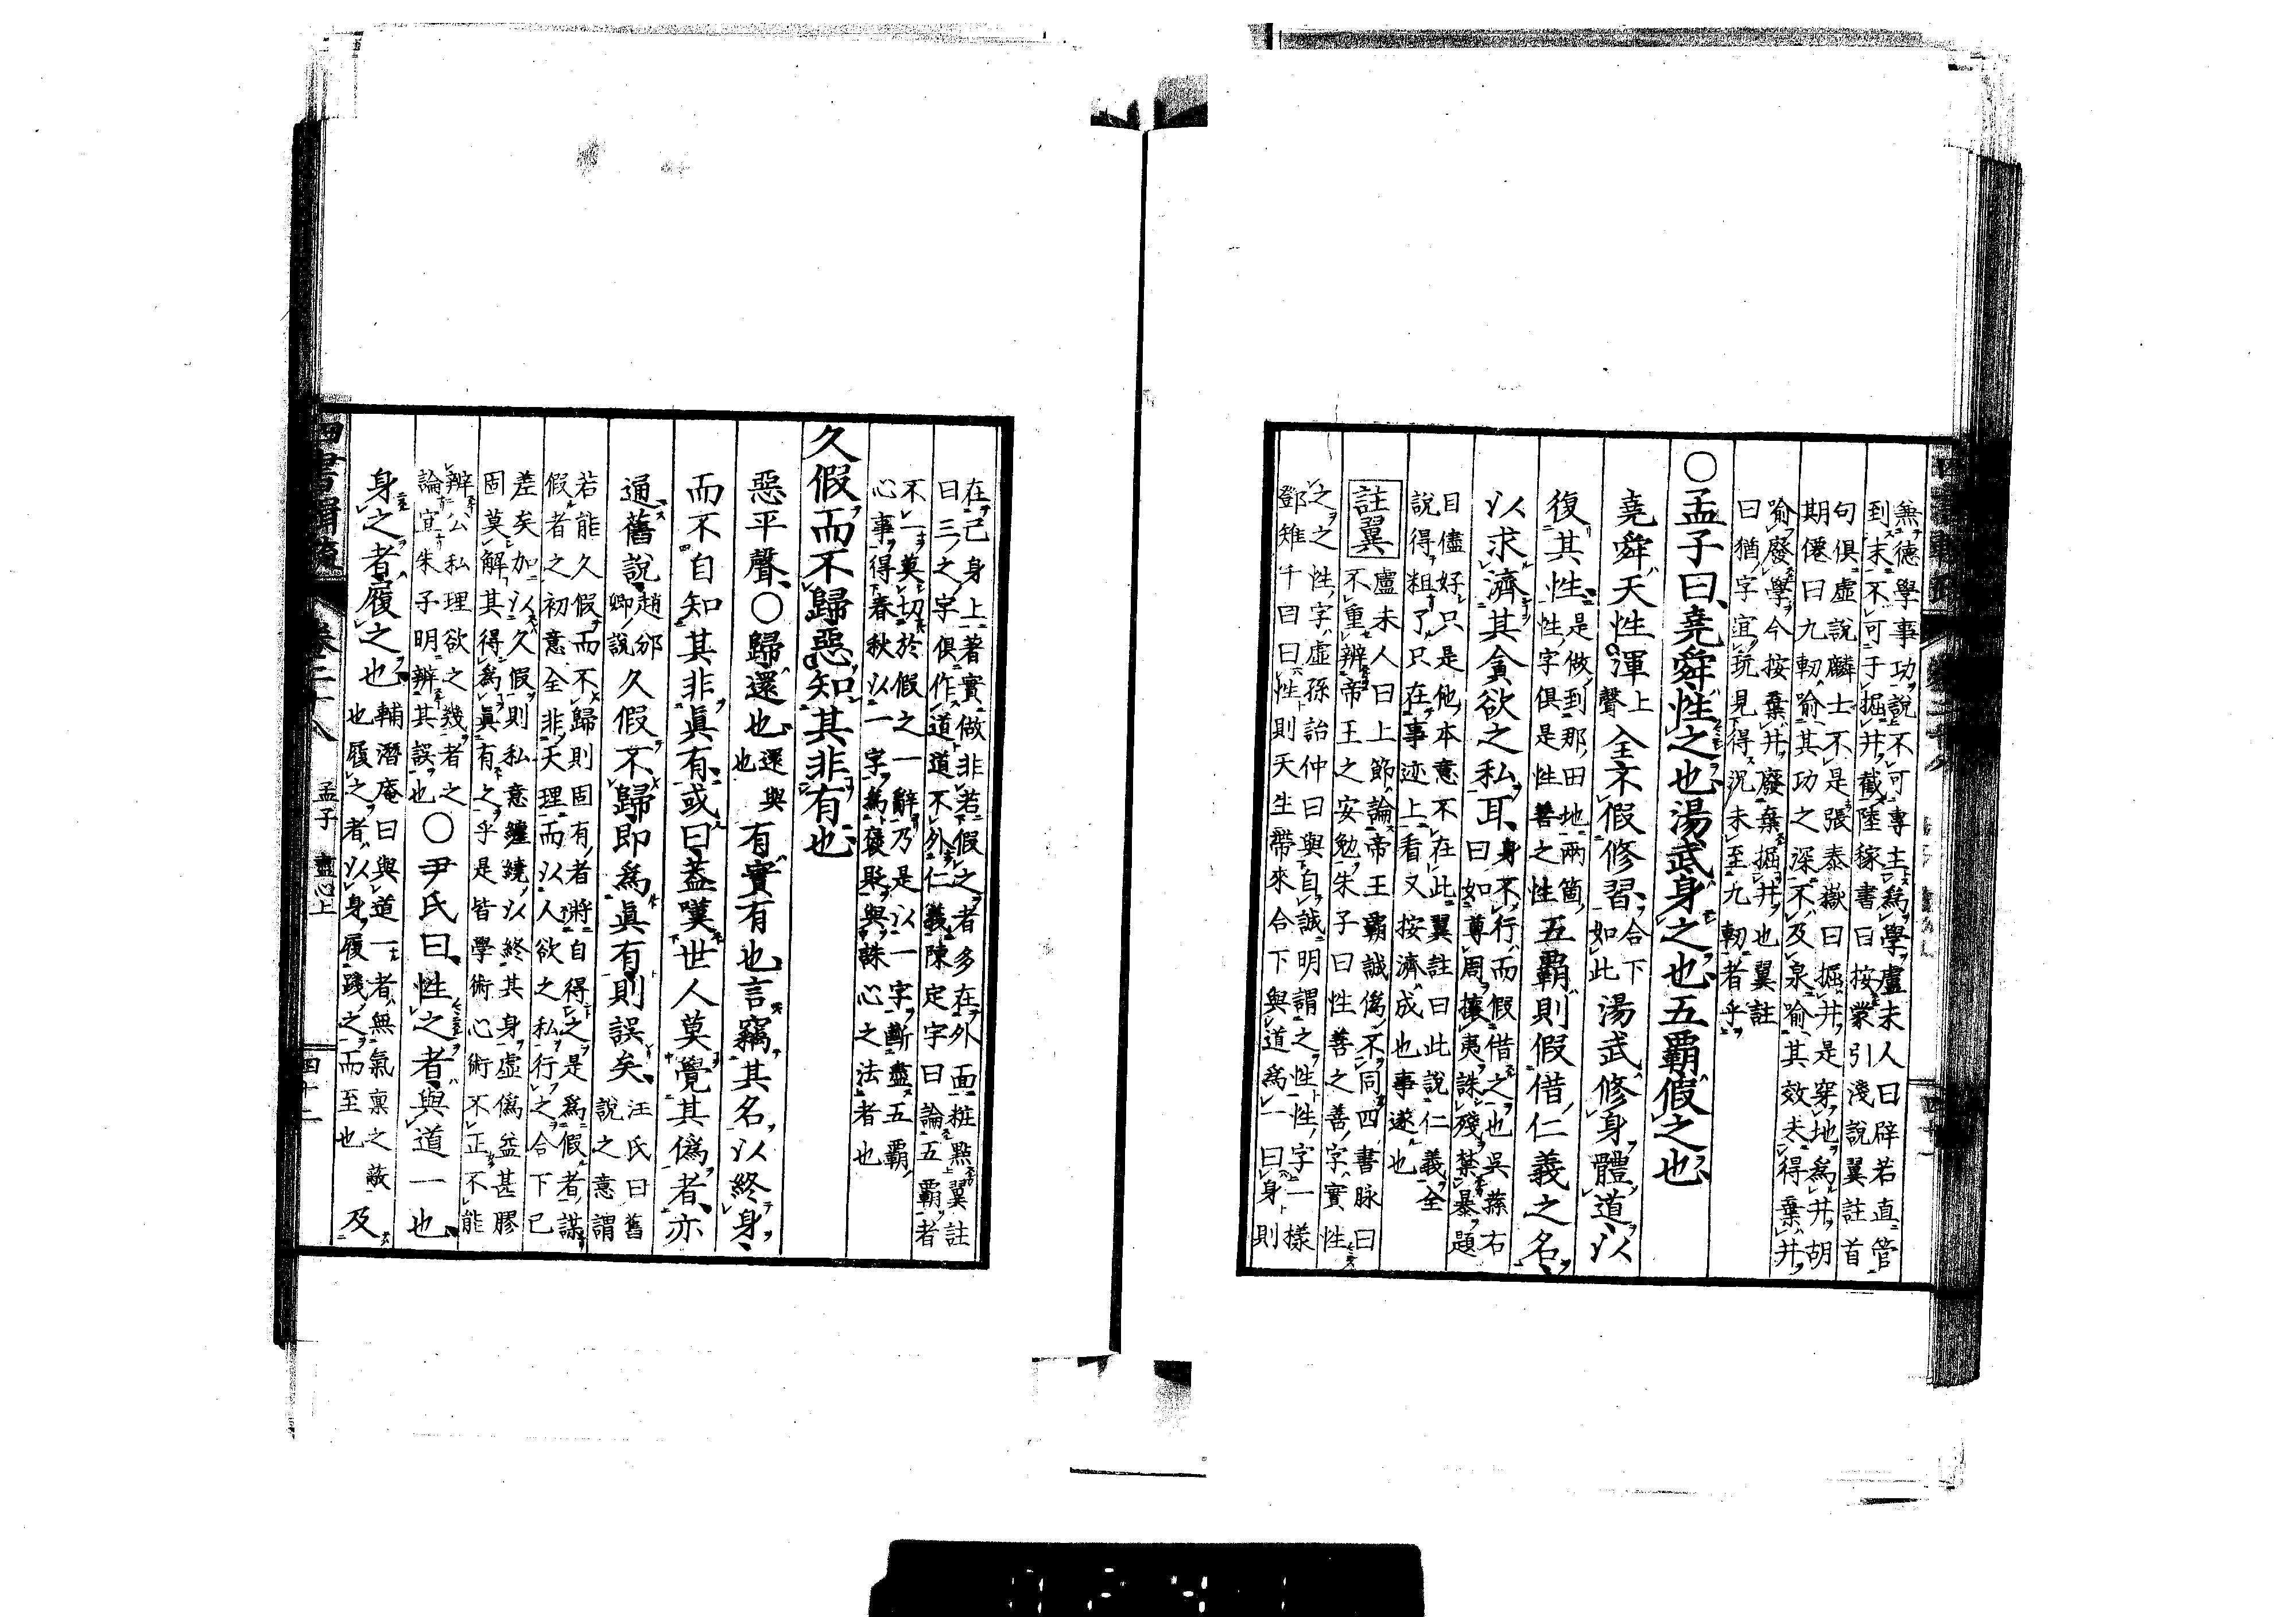 無德學事功說不可專主爲學盧未人曰辟若直管
到末不可于掘井截陸稼書曰按蒙引淺說翼註首
句俱虛說麟士不是張泰嶽曰掘井是穿地爲井胡
期僊曰九軔喻其功之深不及泉喻其效未得棄井
喻廢學今按棄井廢棄掘井也翼註
曰猶字宜玩見得況未至九軔者乎
○孟子曰堯舜性之也湯武身之也五霸假之也
堯舜天性渾上聲全不假修習合下如此湯武修身體道以
復其性是做到那田地兩箇性字俱是性善之性五霸則假借仁義之名
以求濟其貪欲之私耳身不行而假借之也吳蓀右曰如尊周攘夷誅殘禁暴題
目儘好只是他本意不在此翼註曰此說仁義全
說得粗了只在事迹上看又按濟成也事遂也
註翼盧未人曰上節論帝王霸誠僞不同四書脉曰
不重辨帝王之安勉朱子曰性善之善字實性
之之性字虛孫詒仲曰與自誠明謂之性性字一樣
鄧雉千曰曰性則天生帶來合下與道爲一曰身則
在己身上著實做非若假之者多在外面粧點翼註
曰三之字俱作道道不外仁義陳定宇曰論五霸者
不一莫切於假之一辭乃是以一字斷盡五霸
心事得春秋以一字爲褒貶與誅心之法者也
久假而不歸惡知其非有也
惡平聲○歸還也還與也有實有也言竊其名以終身
而不自知其非眞有或曰蓋嘆世人莫覺其僞者亦
通舊說趙邠卿說久假不歸即爲眞有則誤矣汪氏曰舊說之意謂
若能久假而不歸則固有者將自得之是爲假者謀
假者之初意全非天理而以人欲之私行之合下已
差矣加以久假則私意纏繞以終其身虛僞益甚膠
固莫解其得爲眞有之乎是皆學術心術不正不能
辨公私理欲之幾者之
論宜朱子明辨其誤也○尹氏曰性之者與道一也
身之者履之也輔潛庵曰與道一者無氣稟之蔽也履之者以身履踐之而至也及
四書
卷二十八
孟子 盡心上
四十二